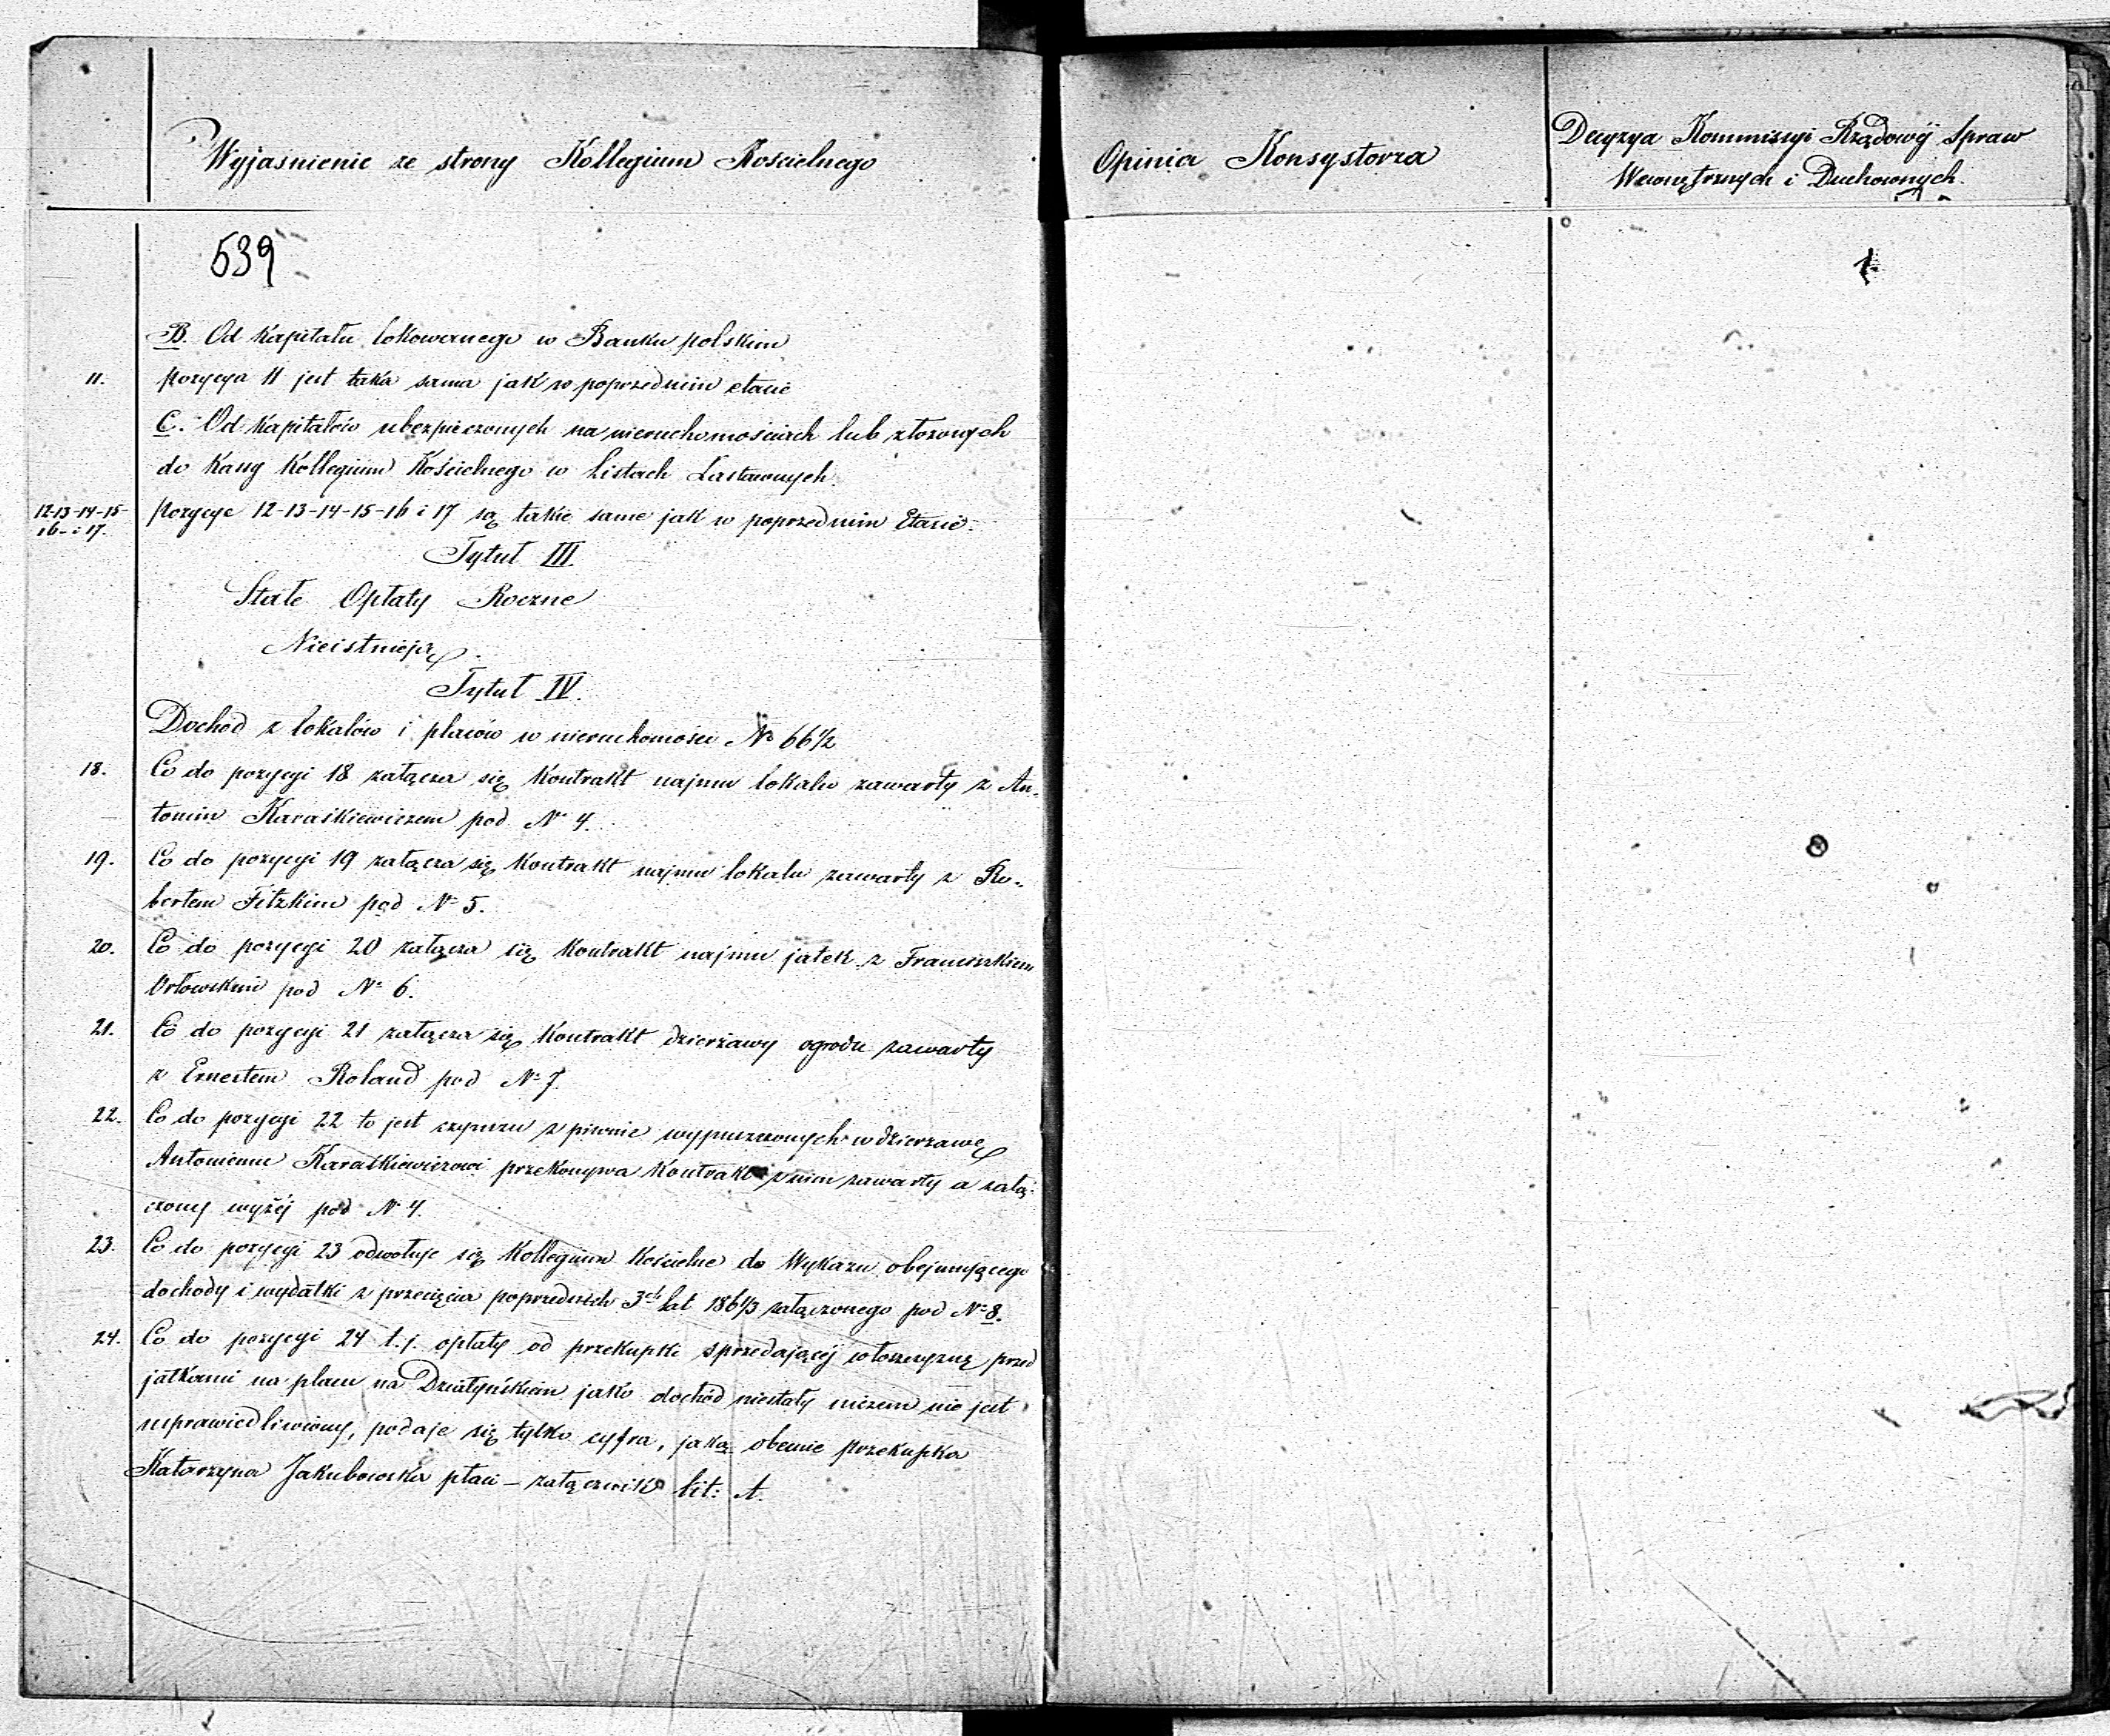 Wyjasnienie ze strony Kollegium Kościelnego
Opinia Konsystorza
Decyzya Kommissyi Rządowéj Spraw
Wewnętrznych i Duchownych.
539
B. Od Kapitału lokowanego w Banku polskim
11. pozycya 11 jest taka sama jak w poprzednim etacie
C. Od Kapitałów ubezpieczonych na nieruchomościach lub złożonych
do Kassy Kollegium Kościelnego w Listach Zastawnych.
12-13-14-15-
16-i 17. pozycye 12-13-14-15-16 i 17 są takie same jak w poprzednim Etacie.
Tytuł III.
Stałe Opłaty Roczne
Nieistnieją.
Tytuł IV.
Dochód z lokalów i placów w nieruchomości No 66 1/2
18. Co do pozycyi 18 załącza się Kontrakt najmu lokalu zawarty z An-
tonim Karaśkiewiczem pod No 4.
19. Co do pozycyi 19 załącza się Kontrakt najmu lokalu zawarty z Ro-
bertem Fitzkim pod No 5.
20. Co do pozycyi 20 załącza się Kontrakt najmu jatek z Franciszkiem
Orłowskim pod No 6.
21. Co do pozycyi 21 załącza się Kontrakt dzierżawy ogrodu zawarty
z Ernestem Roland pod No 7.
22. Co do pozycyi 22 to jest czynszu z piwnic wypuszczonych w dzierzawę
Antoniemu Karaśkiewiczowi przekonywa Kontrakt z nim zawarty a załą-
czony wyżéj pod No 4.
23. Co do pozycyi 23 odwołuje się Kollegium Kościelne do Wykazu obejmującego
dochody i wydatki z przecięcia poprzednich 3ch lat 1861/3 załączonego pod No 8.
24. Co do pozycyi 24 t.j. opłaty od przekupki sprzedającéj włoszczyznę przed
jatkami na placu na Działyńskim jako dochód niestały niczem nie jest
usprawiedliwiony, podaje się tylko cyfra, jaką obecnie przekupka
Katarzyna Jakubowska płaci - załącznik lit: A.